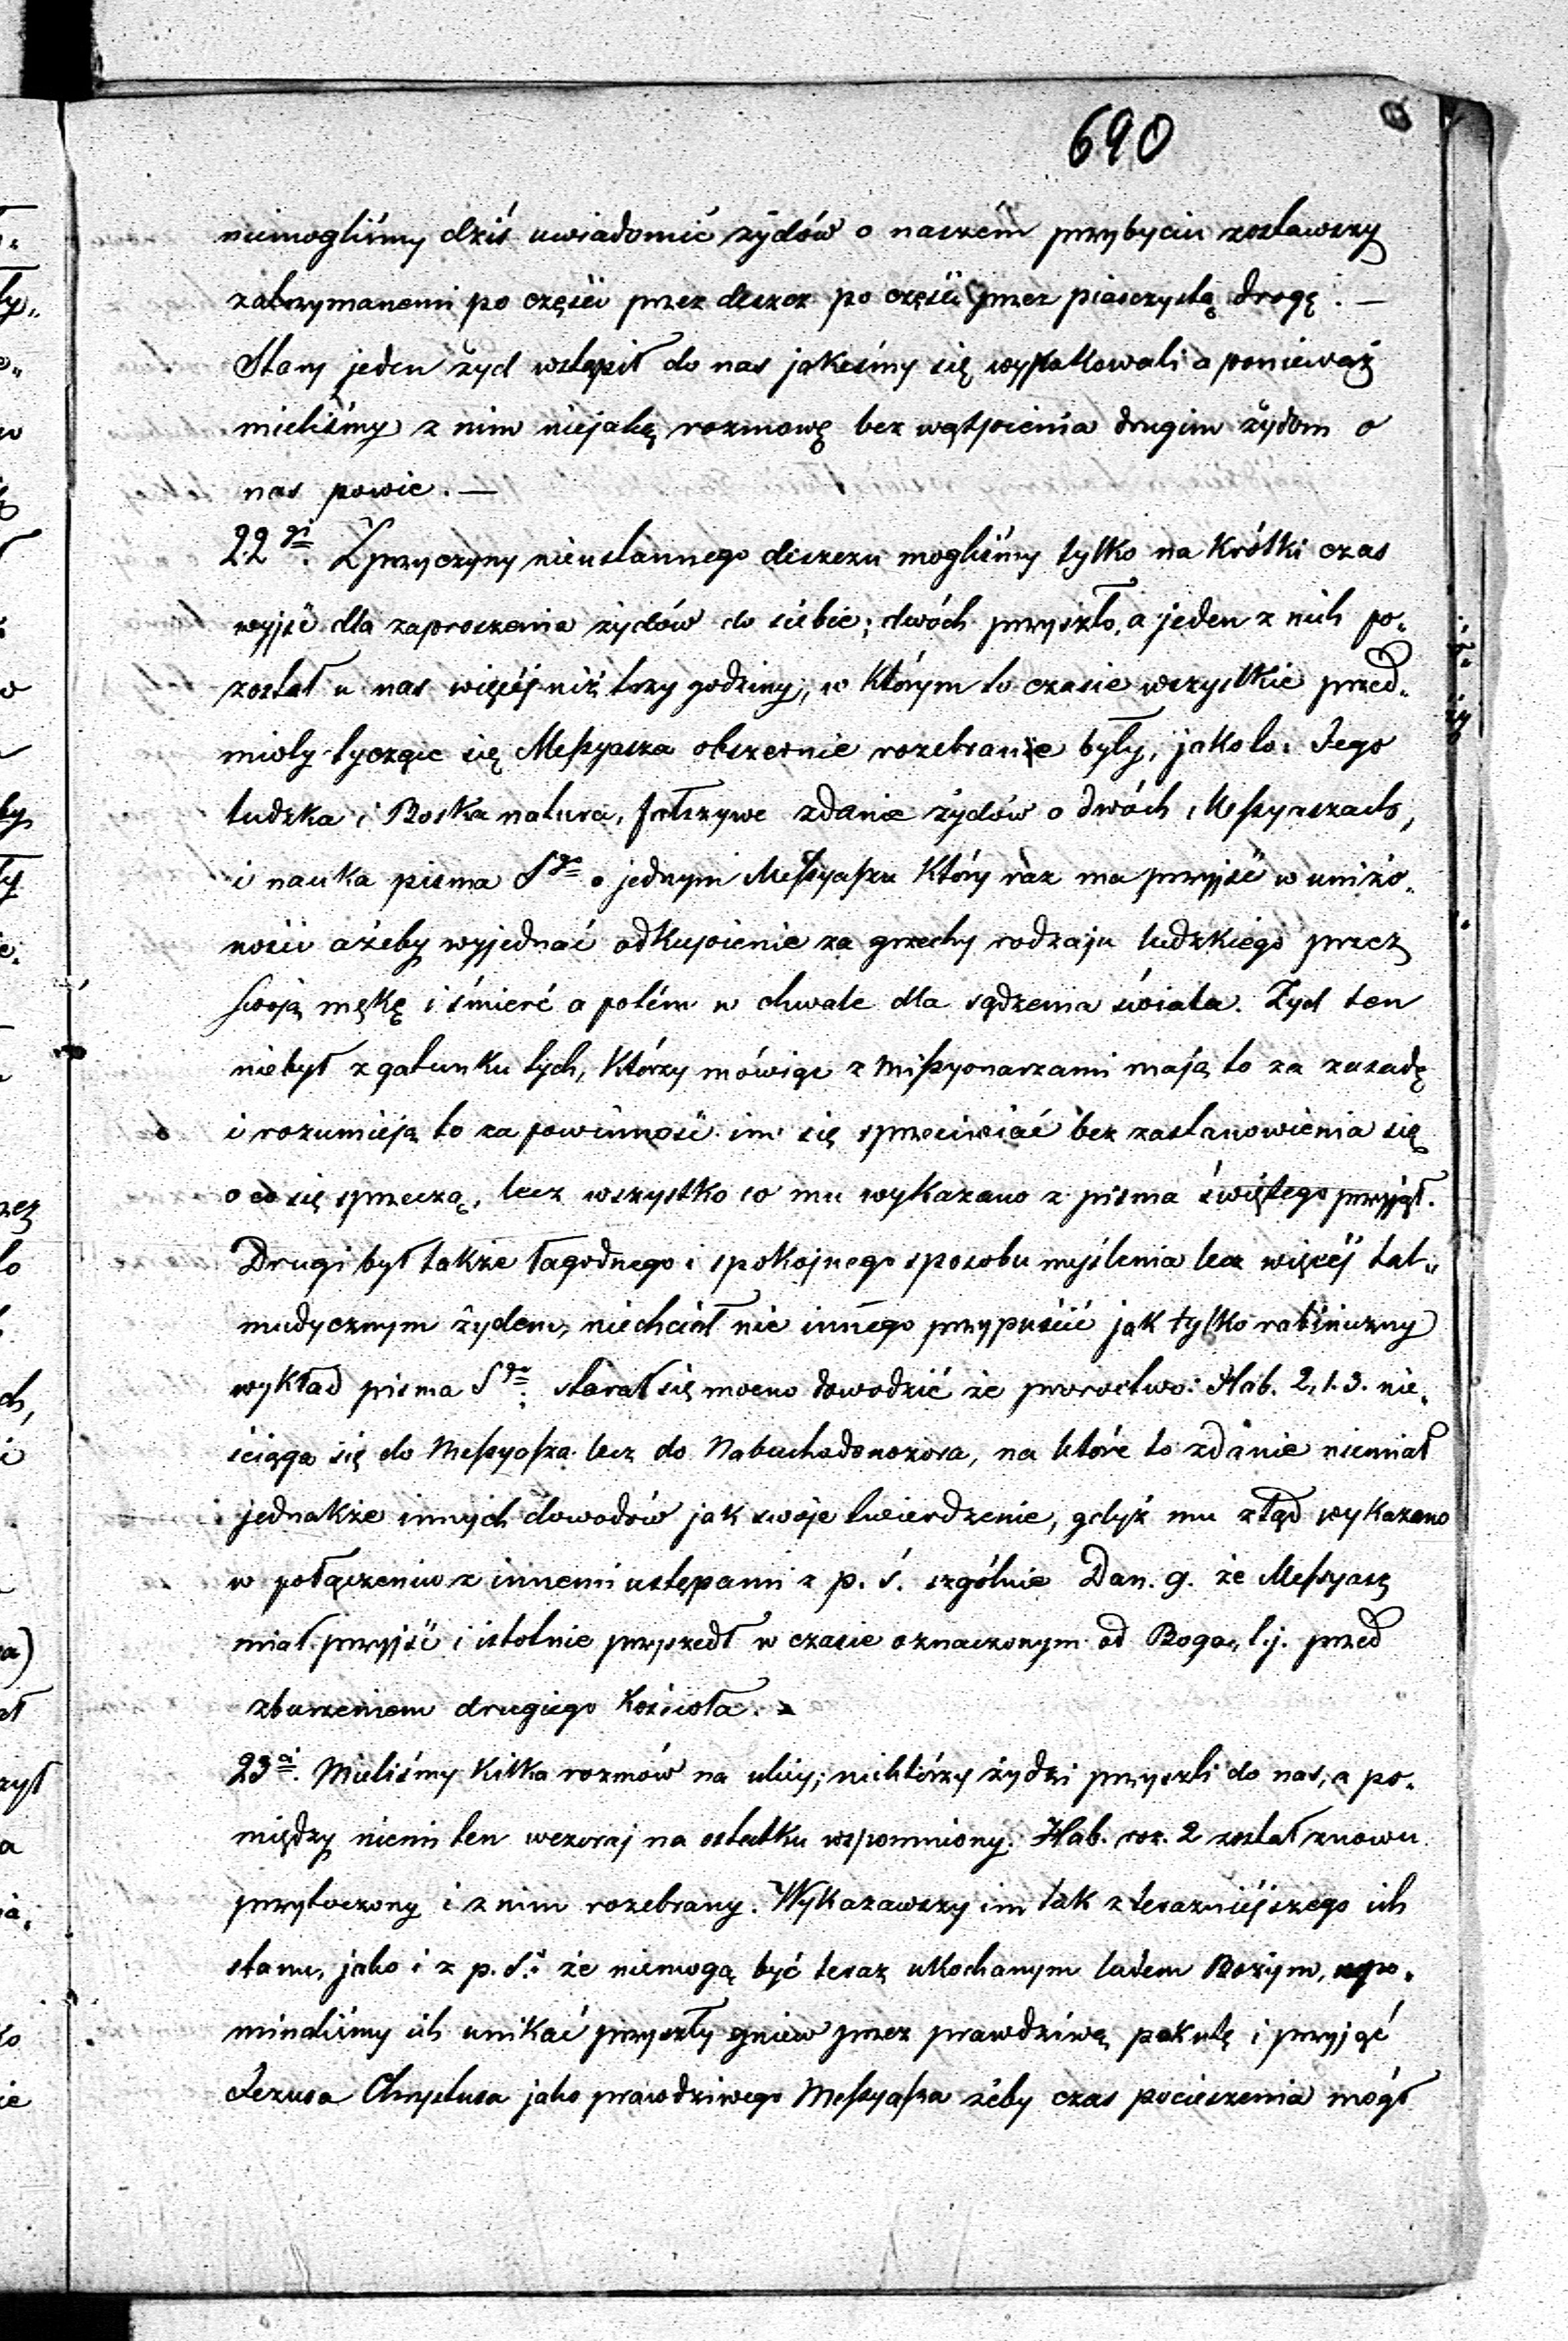 690
niemogliśmy dziś uwiadomić żydów o naszém przybyciu zostawszy
zatrzymanemi po części przez deszcz po części przez piasczystą drogę. —
Stary jeden żyd wstąpił do nas jakeśmy się wypakowali a ponieważ
mieliśmy z nim niejaką rozmowę bez wątpienia drugim żydom o
nas powie. —
22gi. Z przyczyny nieustannego deszczu mogliśmy tylko na krótki czas
wyjść dla zaproszenia żydów do siebie; dwóch przyszło, a jeden z nich po„
został u nas więcéj niż trzy godziny, w którym to czasie wszystkie przed„
mioty tyczące się Messyasza obszernie rozebranie były, jako to: Jego
ludzka i Boska natura, fałszywe zdanie żydów o dwóch Messyaszach,
i nauka pisma Sgo o jednym Messyaszu który raz ma przyjść w uniżo„
ności ażeby wyjednać odkupienie za grzechy rodzaju ludzkiego przez
swoją mękę i śmierć a potém w chwale dla sądzenia świata. Żyd ten
niebył z gatunku tych, którzy mówiąc z missyonarzami mają to za zasadę
i rozumieją to za powinność im się sprzeciwiać bez zastanowienia się
o co się sprzeczą, lecz wszystko co mu wykazano z pisma świętego przyjął.
Drugi był także łagodnego i spokojnego sposobu myślenia lecz więcéj tal„
mudycznym żydem, niechciał nic innego przypuścić jak tylko rabiniczny
wykład pisma Sgo: starał się mocno dowodzić że proroctwo: Hab. 2, 1.3. nie„
ściąga się do Messyasza lecz do Nabuchodonozora, na które to zdanie niemiał
jednakże innych dowodów jak swoje twierdzenie, gdyż mu ztąd wykazano
w połączeniu z innemi ustępami z p. ś. szgólnie Dan. 9. że Messyasz
miał przyjść i istotnie przyszedł w czasie oznaczonym od Boga, t.j. przed
zburzeniem drugiego kościoła.
23ci. Mieliśmy kilka rozmów na ulicy; niektórzy żydzi przyszli do nas, a po„
między niemi ten wczoraj na ostatku wspomniony. Hab. roz. 2 został znowu
przytoczony i z nim rozebrany. Wykazawszy im tak z teraźniéjszego ich
stanu, jako i z p. S. że niemogą być teraz ukochanym ludem Bożym, upo„
minaliśmy ich unikać przyszły gniew przez prawdziwą pokutę i przyjąć
Jezusa Chrystusa jako prawdziwego Messyasza żeby czas pocieszenia mógł